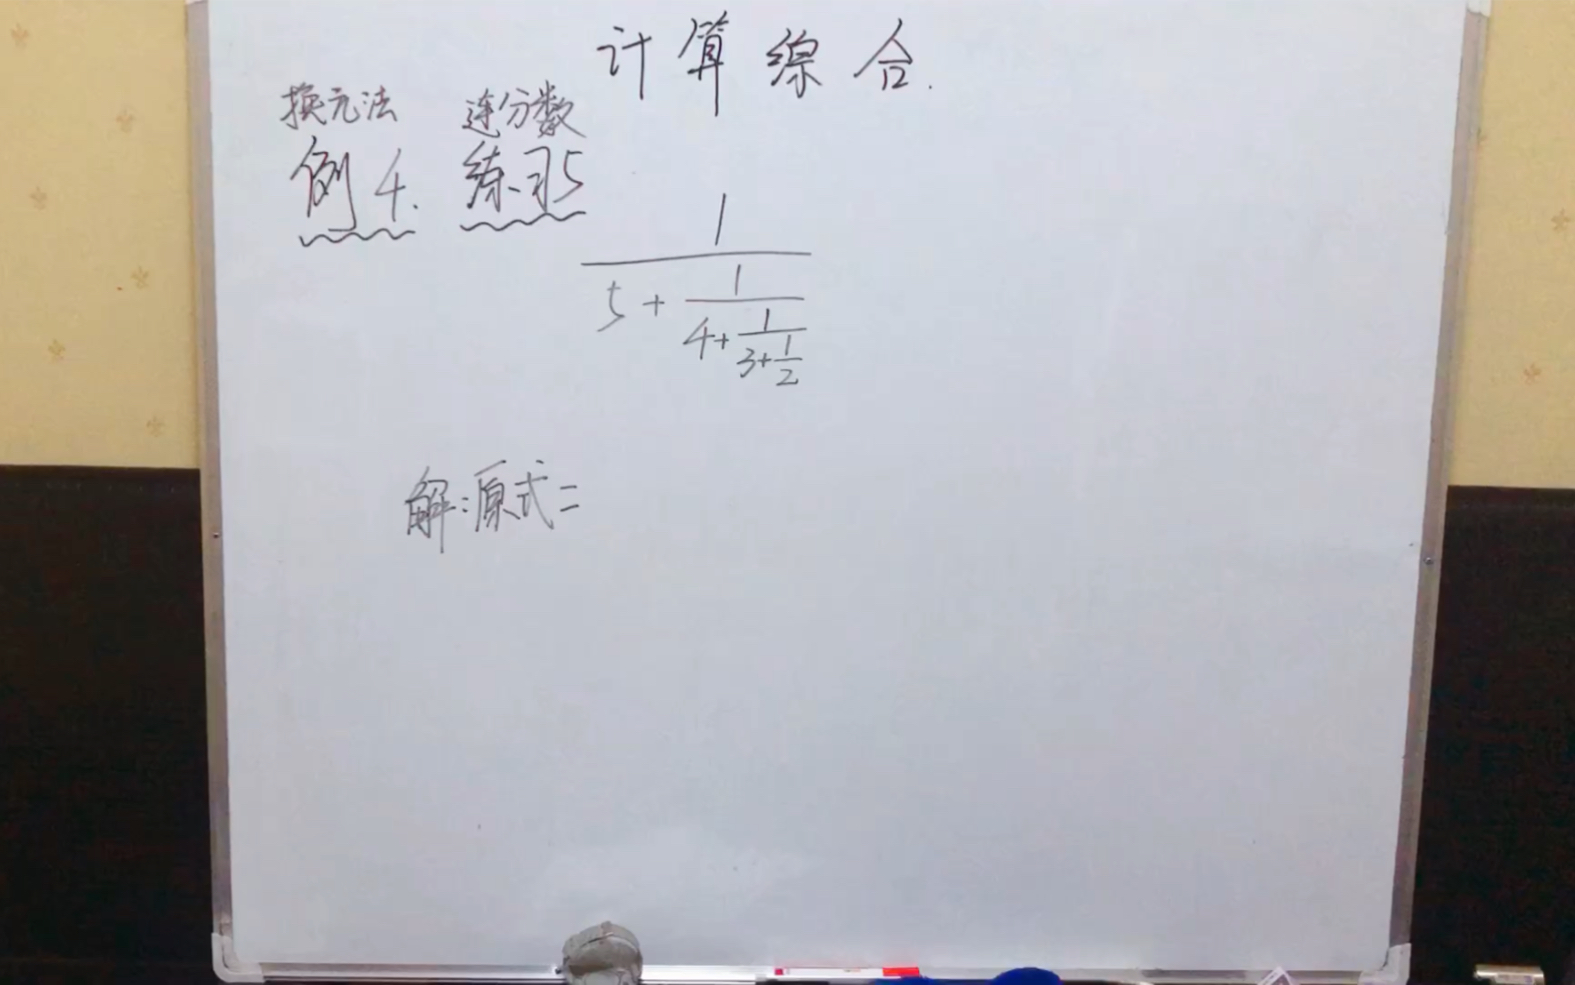 计算综合.
换元法 连分数
例4. 练习5
1
5+ 1
4+ 1
3+ 1
2
解:原式=